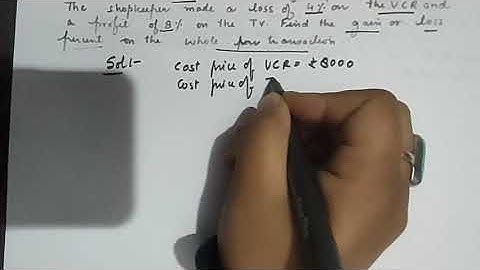 The shopkeeper made a loss of 4% on the VCR and
a profit of 8% on the TV. Find the gain or loss
percent on the whole transaction
Sol:- Cost price of VCR = ₹8000
Cost price of T